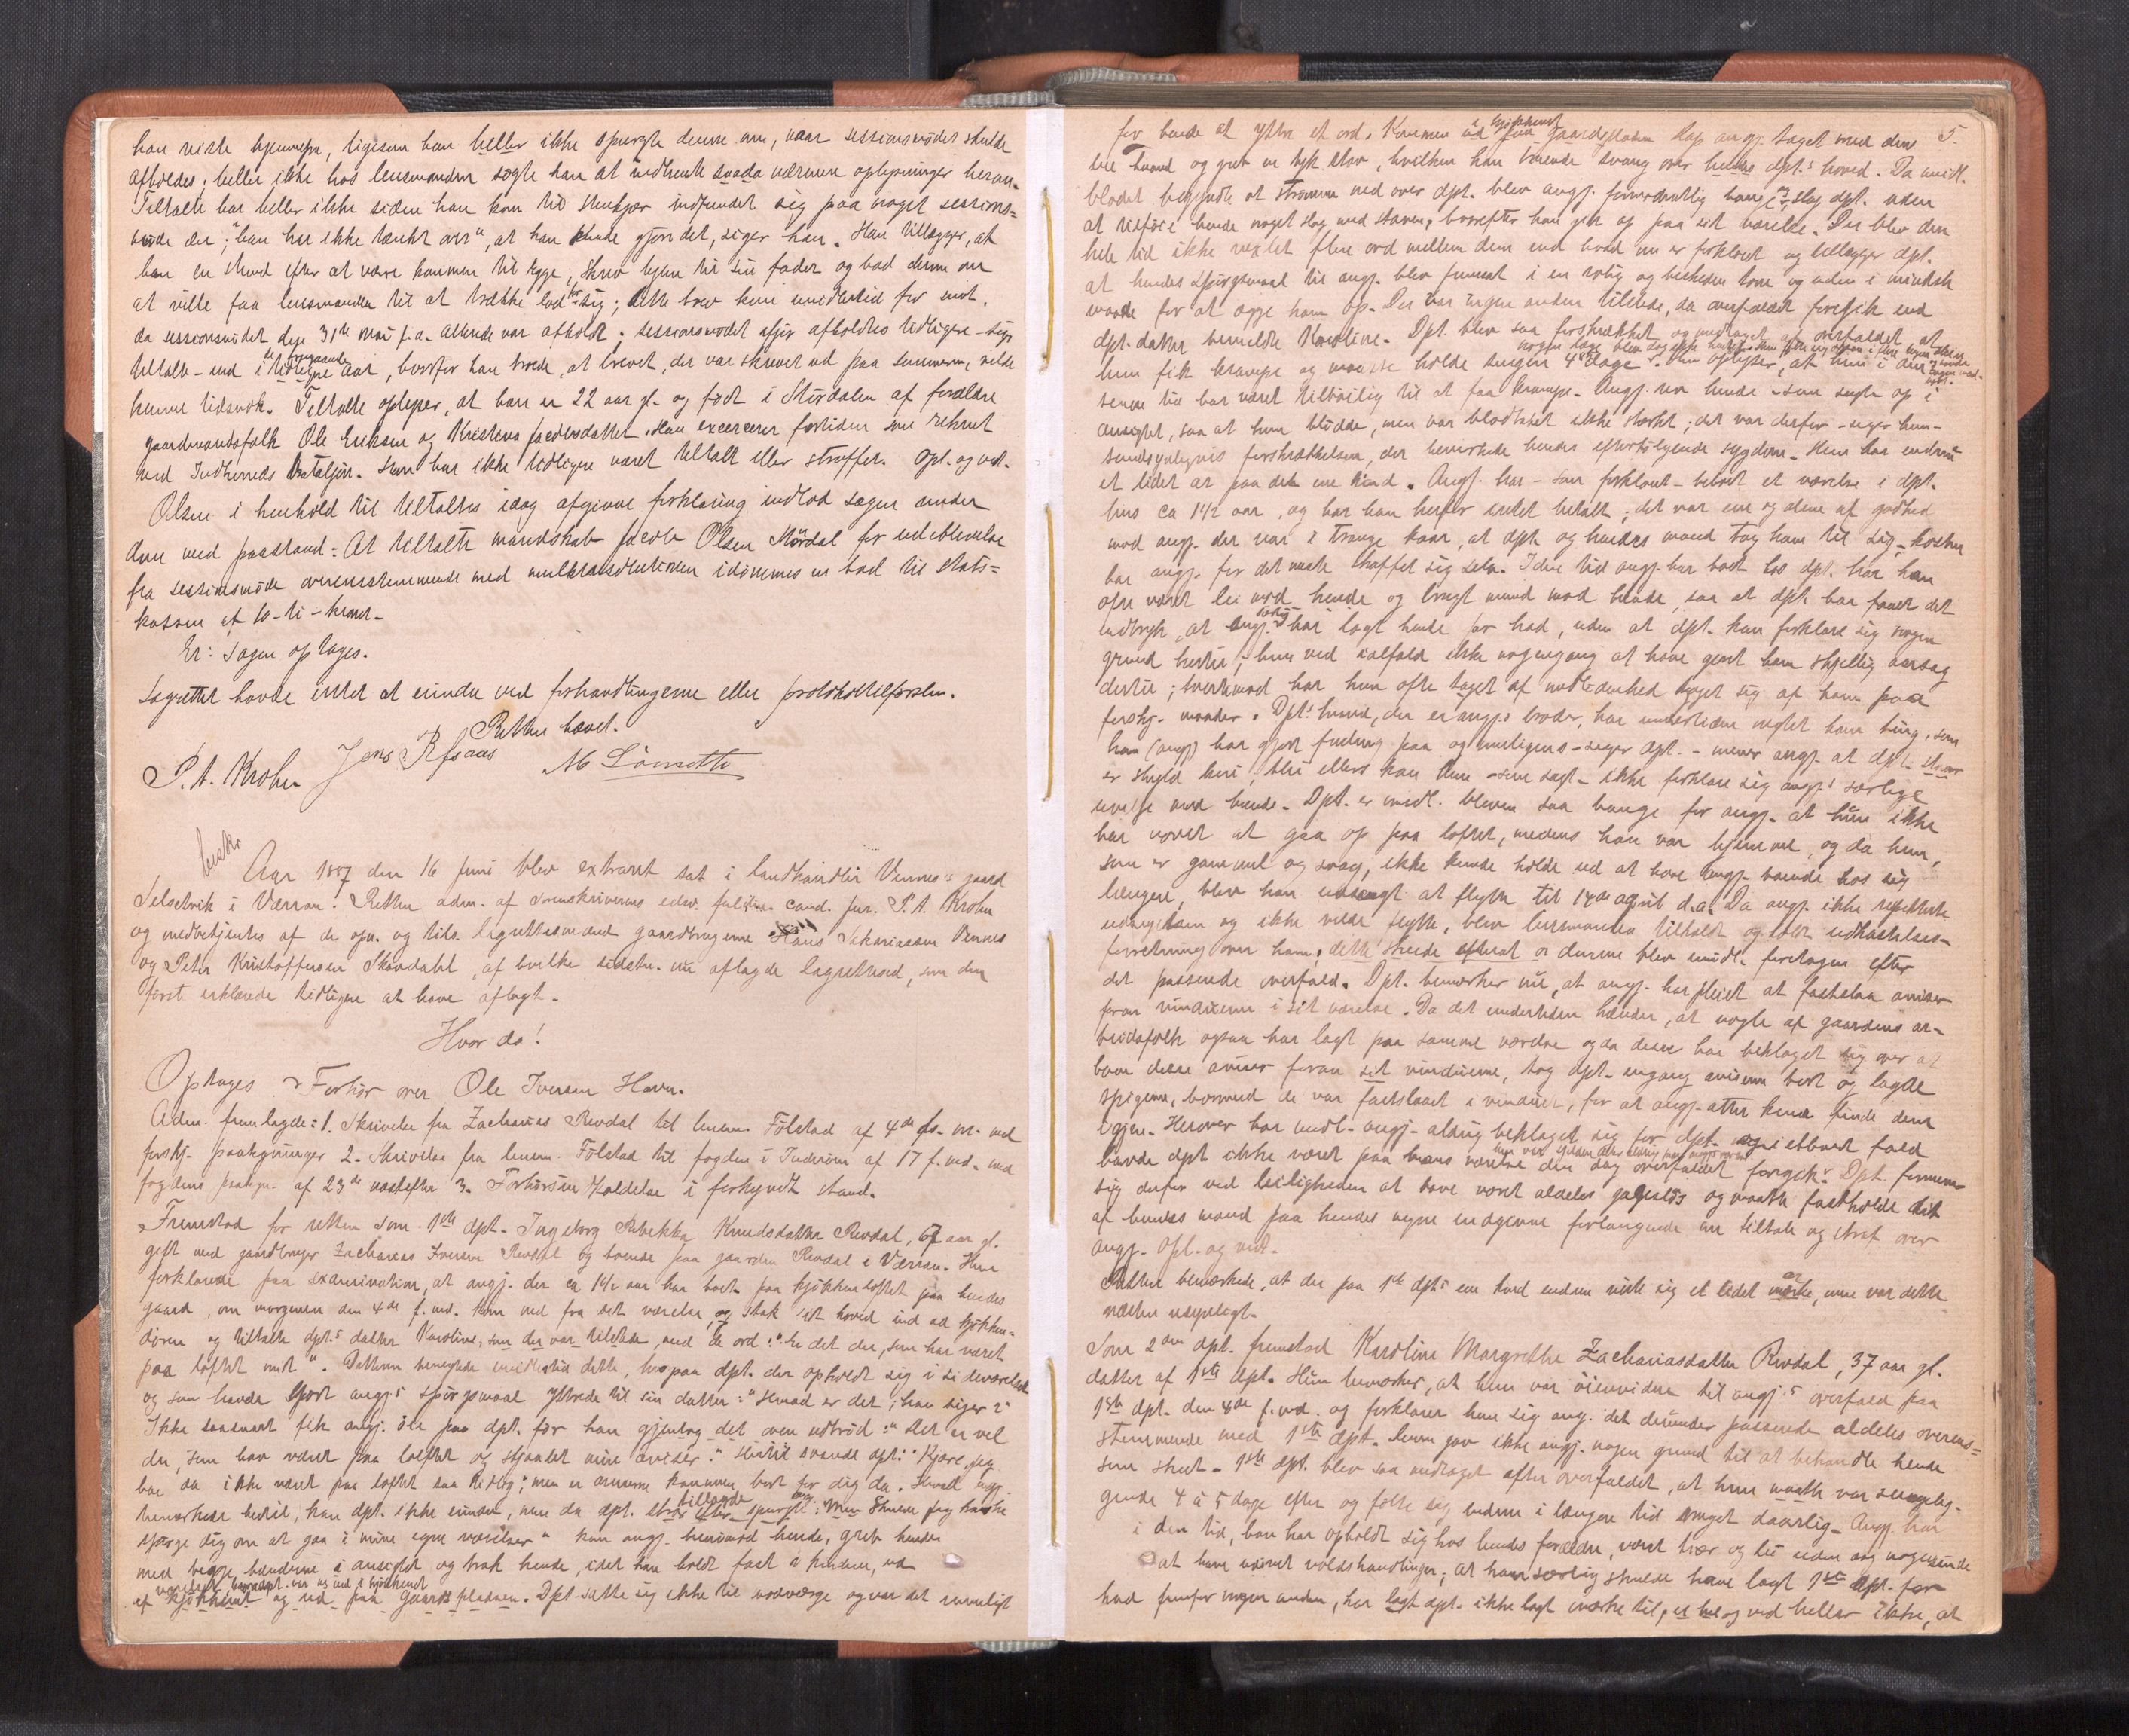 han reiste hjemmefra, ligesom han heller ikke spurgte denne om, naar sessionsmødet skulde
afholdes; heller ikke hos lensmanden søgte han at indhente saada nærmere oplysninger herom.
Tiltalte har heller ikke siden han kom til Stenkjær indfundet sig paa noget sessions=
møde der; "han har ikke tænkt over", at han kunde gjøre det, siger han. Han tillægger, at
han en stund efter at være kommen til Egge, skrev hjem til sin fader og bad denne om
at ville faa lensmanden til at trække lod for sig; dette brev kom imidlertid for sent,
da sessionsmødet dege 31te mai f.a. allerede var afholdt; sessionsmødet afgjor afholdtes tidligere - sig
tiltalte - end i tidligere de foregaaende aar, hvorfor han troede, at brevet, der var skrevet ud paa sommeren, vilde
komme tidsnok. Tiltalte oplyser, at han er 22 aar gl. og født i Størdalen af forældre
gaardmandsfolk Ole Eriksen og Kristina Jacobsdatter. Han excercerer fortiden som rekrut
ved Indherreds Bataljon. Han har ikke tidligere været tiltalt eller straffet. Opl. og ved.
Olsen i henhold til tiltaltes idag afgivne forklaring indlod sagen under
dom med paastand: At tiltalte mandskab Jacob Olsen Størdal for udeblivelse
fra sessionsmøde overensstemmende med mulktsresolutionen idømmes en bod til stats=
kassen af 10 - ti - kroner.
Er: Sagen optages.
Lagrettet havde intet at erindre ved forhandlingerne eller protokoltilførslen.
Retten hævet.
P. A. Krohn Jens Refsaas M Lønsethe
Aar 1887 den 16 Juni blev extraret sat i landhandler Vennes's gaard
Selselvik i Værran. Retten adm. af sorenskriverens edsv. fuldm. cand. jur. P. A. Krohn
og medbetjentes af de opn. og tils. lagrettesmænd gaardbrugerne Hans Sakariassen Vennes
og Peter Kristoffersen Skavdahl, af hvilke sidstn. nu aflagde lagretteed, som den
først erklærede tidligere at have aflagt.
Hvor da!
Optages Forhør over Ole Iversen Havn.
Adm. fremlagde: 1. Skrivelse fra Zacharias Rodal til lensm. Fölstad af 4de f. m. med
forskj. paategninger 2. Skrivelse fra lensm. Fölstad til fogden i Inderøen af 17 f. md. med
fogdens paategn. af 23de næstefter 3. Forhørsindkaldelse i forkyndt stand.
Fremstod for retten som 1ste dpt. Ingeborg Rebekka Knudsdatter Rodal, 67 aar gl.
gift med gaardbruger Zacharias Iversen Rodal og boende paa gaarden Rodal i Værran. Hun
forklarede paa examination, at angj. der ca 1 1/2 aar har boet paa kjøkkenloftet paa hendes
gaard, om morgenen den 4de f. md. kom ned fra sit værelse, og stak sit hoved ind ad kjøkken=
døren og tiltalte dpt.s datter Karoline, som der var tilstede, med de ord: "Er det du, som har været
paa loftet mit". Datteren benegtede imidlertid dette, hvorpaa dpt. der opholdt sig i sideværelset
og som havde hørt angj.s spørgsmaal yttrede til sin datter: "Hvad er det, han siger?"
Ikke saasnart fik angj. øie paa dpt. før han gjentog det oven udtrod: "Det er vel
du, som har været paa loftet og skjændet mine aviser." Hertil svarede dpt: "Kjære, jeg
har da ikke været paa loftet saa tidlig; men er aviserne kommen bort for dig da. Hvad angj.
bemerkede hertil, kan dpt. ikke erindre, men da dpt. tillagde og spurgte: Skulde jeg kanske
spørge dig om at gaa i mine egne værelser" kom angj. henimod hende, greb hende
med begge hænderne i ansigtet og trak hende, idet han holdt fast i kinden, ud
af kjøkkenet og ud paa gaardspladsen. Dpt satte sig ikke til modværge og var det umuligt
5.
for hende at yttre et ord. Kommen ud i kjøkkenet paa gaardspladsen slap angj. taget med den
ene haand og greb en tyk stav, hvilken han truende svang over hendes dpt.s hoved. Da imidl.
blodet begyndte at strømme ned over dpt. blev angj. formodentlig bange og slap dpt. uden
at tilføie hende noget slag med staven, hvorefter han gik op paa sit værelse. Der blev den
hele tid ikke vexlet flere ord mellem dem end hvad nu er forklaret og tillægger dpt.
at hendes spørgsmaal til angj. blev fremsat i en rolig og beskeden tone og uden i mindste
maade for at egge ham op. Der var ingen anden tilstede, da overfaldet foregik end
dpt. datter bemeldte Karoline. Dpt. blev saa forskrækket og medtaget af overfaldet at
hun fik krampe og maatte holde sengen 4 dage. Hun oplyser, at hun i den
senere tid har været tilbøilig til at faa krampe. Angj. rev hende - som sagt op i
ansigtet, saa at hun blødde, men var blodtabet ikke sterkt; det var derfor - siger hun -
sandsynligvis forskrækkelsen, der bevirkede hendes efterfølgende sygdom. Hun har endnu
et lidet ar paa den ene kind. Angj. har - som forklaret - beboet et værelse i dpt.
hus ca 1 1/2 aar, og har han herfor intet betalt; det var ene og alene af godhed
mod angj. der var i trange kaar, at dpt. og hendes mand tog ham til sig; kosten
har angj. for det meste skaffet sig selv. I den tid angj. har boet hos dpt. har han
ofte været lei mod hende og brugt mund mod hende, saa at dpt. har faaet det
indtryk, at angj. særlig har lagt hende for had, uden at dpt. kan forklare sig nogen
grund hertil; - hun ved ialfald ikke nogengang at have gjort ham skjellig aarsag
dertil; tvertimod har hun ofte taget af medlidenhed taget sig af ham paa
forskj. maader. Dpt.s mand, der er angj.s broder, har undertiden negtet ham ting, som
han (angj) har gjort fordring paa og muligens - siger dpt. - mener angj. at dpt.
er skyld heri; thi ellers kan hun - som sagt - ikke forklare sig angj.s særlige
uvilje mod hende. Dpt. er imidl. bleven saa bange for angj. at hun ikke
har vovet at gaa op paa loftet, medens han var hjemme, og da hun,
som er gammel og svag, ikke kunde holde ud at have angj. boende hos sig
længere, blev han udsagt at flytte til 14de april d.a. Da angj. ikke respekterte
udsigelsen og ikke vilde flytte, blev lensmanden tilkaldt og holdt udkastelses=
forretning over ham; dette skeede efterat denne blev imidl. foretagen efter
det passerede overfald. Dpt. bemerker nu, at angj. har pleiet at fastslaa aviser
foran vinduerne i sit værelse. Da det undertiden hænder, at nogle af gaardens ar=
beidsfolk ogsaa har lagt paa samme værelse og da disse har beklaget sig over at
have disse aviser foran sit vinduerne, tog dpt. engang aviserne bort og lagde
spigerne, hvormed de var fastslaaet i vinduet, for at angj. atter kunde finde dem
igjen. Herover har imidl. angj. aldrig beklaget sig for dpt. og i ethvert fald
havde dpt ikke været paa hans værelse den dag overfaldet foregik. Dpt. formener
sig derfor ved leiligheden at have været aldeles sagesløs og maatte fastholde dit
af hendes mand paa hendes vegne indgivne forlangende om tiltale og straf over
angj. Opl. og ved.
Retten bemerkede, at der paa 1ste dpt.s ene kind endnu viste sig et lidet ar, men var dette
næsten usynligt.
Som 2den dpt. fremstod Karoline Margrethe Zachariasdatter Rodal, 37 aar gl.
datter af 1ste dpt. Hun bemerker, at hun var øienvidne til angj.s overfald paa
1ste dpt. den 4de f. md. og forklarer hun sig ang. det derunder passerede aldeles overens=
stemmende med 1ste dpt. Denne gav ikke angj. nogen grund til at behandle hende
som skeet. 1ste dpt. blev saa medtaget efter overfaldet, at hun maatte var sengelig=
gende 4 á 5 dage efter og følte sig endnu i længere tid meget daarlig. Angj. har
i den tid, han har opholdt sig hos hendes forældre, været tvær og lei uden dog nogensinde
at have udøvet voldshandlinger; at han særlig skulde have lagt 1ste dpt. for
had fremfor nogen anden, har dpt. ikke lagt merke til, og ved heller ikke, at